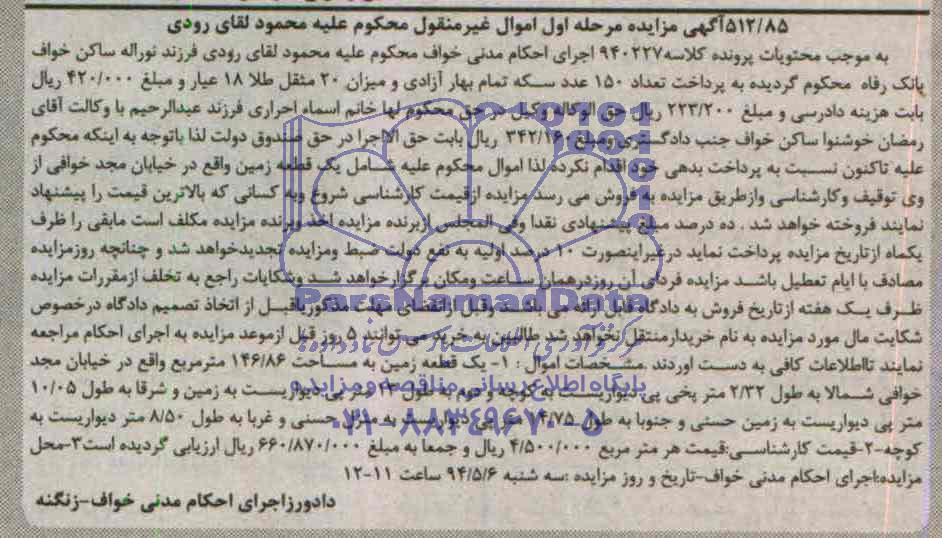 ۵۱۲/۸۵آگهی مزایده مرحله اول اموال غیرمنقول محکوم علیه محمود لقای رودی
به موجب محتویات پرونده کلاسه۹۴۰۲۲۷ اجرای احکام مدنی خواف محکوم علیه محمود لقای رودی فرزند نوراله ساکن خواف
بانک رفاه محکوم گردیده به پرداخت تعداد ۱۵۰ عدد سکه تمام بهار آزادی و میزان ۲۰ مثقل طلا ۱۸ عیار و مبلغ ۴۲۰/۰۰۰ ریال
بابت هزینه دادرسی و مبلغ ۲۲۳/۲۰۰ ریال حق الوکاله وکیل در حق محکوم لها خانم اسماء احراری فرزند عبدالرحیم با وکالت آقای
رمضان خوشنوا ساکن خواف جنب دادگستری ومبلغ ۳۴۲/۱۶۰ ریال بابت حق الااجرا در حق صندوق دولت لذا باتوجه به اینکه محکوم
علیه تاکنون نسبت به پرداخت بدهی خود اقدام نکرده لذا اموال محکوم علیه شامل یک قطعه زمین واقع در خیابان مجد خوافی از
وی توقیف وکارشناسی وازطریق مزایده به فروش می رسد مزایده ازقیمت کارشناسی شروع وبه کسانی که بالاترین قیمت را پیشنهاد
نمایند فروخته خواهد شد . ده درصد مبلغ پیشنهادی نقدا وفی المجلس ازبرنده مزایده اخذ وبرنده مزایده مکلف است مابقی را ظرف
یکماه ازتاریخ مزایده پرداخت نماید درغیراینصورت ۱۰ درصد اولیه به نفع دولت ضبط ومزایده تجدیدخواهد شد و چنانچه روزمزایده
مصادف با ایام تعطیل باشد مزایده فردای آن روزدرهمان ساعت ومکان برگزارخواهد شد وشکایات راجع به تخلف ازمقررات مزایده
ظرف یک هفته ازتاریخ فروش به دادگاه قابل ارائه می باشد وقبل ازانقضای مهلت مذکوریاقبل از اتخاذ تصمیم دادگاه درخصوص
شکایت مال مورد مزایده به نام خریدارمنتقل نخواهد شد طالبین به خرید می توانند ۵ روز قبل ازموعد مزایده به اجرای احکام مراجعه
نمایند تااطلاعات کافی به دست اوردند .مشخصات اموال : ۱- یک قطعه زمین به مساحت ۱۴۶/۸۶ مترمربع واقع در خیابان مجد
خوافی شمالا به طول ۲/۳۲ متر پخی پی دیواریست به کوچه و دوم به طول ۱۲ متر پی دیواریست به زمین و شرقا به طول ۱۰/۰۵
متر پی دیواریست به زمین حسنی و جنوبا به طول ۱۴/۷۵ متر پی دیواریست به منزل حسنی و غربا به طول ۸/۵۰ متر دیواریست به
کوچه-۲-قیمت کارشناسی:قیمت هر متر مربع ۴/۵۰۰/۰۰۰ ریال و جمعا به مبلغ ۶۶۰/۸۷۰/۰۰۰ ریال ارزیابی گردیده است۳-محل
مزایده:اجرای احکام مدنی خواف-تاریخ و روز مزایده :سه شنبه ۹۴/۵/۶ ساعت ۱۱-۱۲
دادورزاجرای احکام مدنی خواف-زنگنه
ParsNamadData
پایگاه اطلاع رسانی مناقصه و مزایده
۰۲۱-۸۸۳۴۹۶۷۰-۵